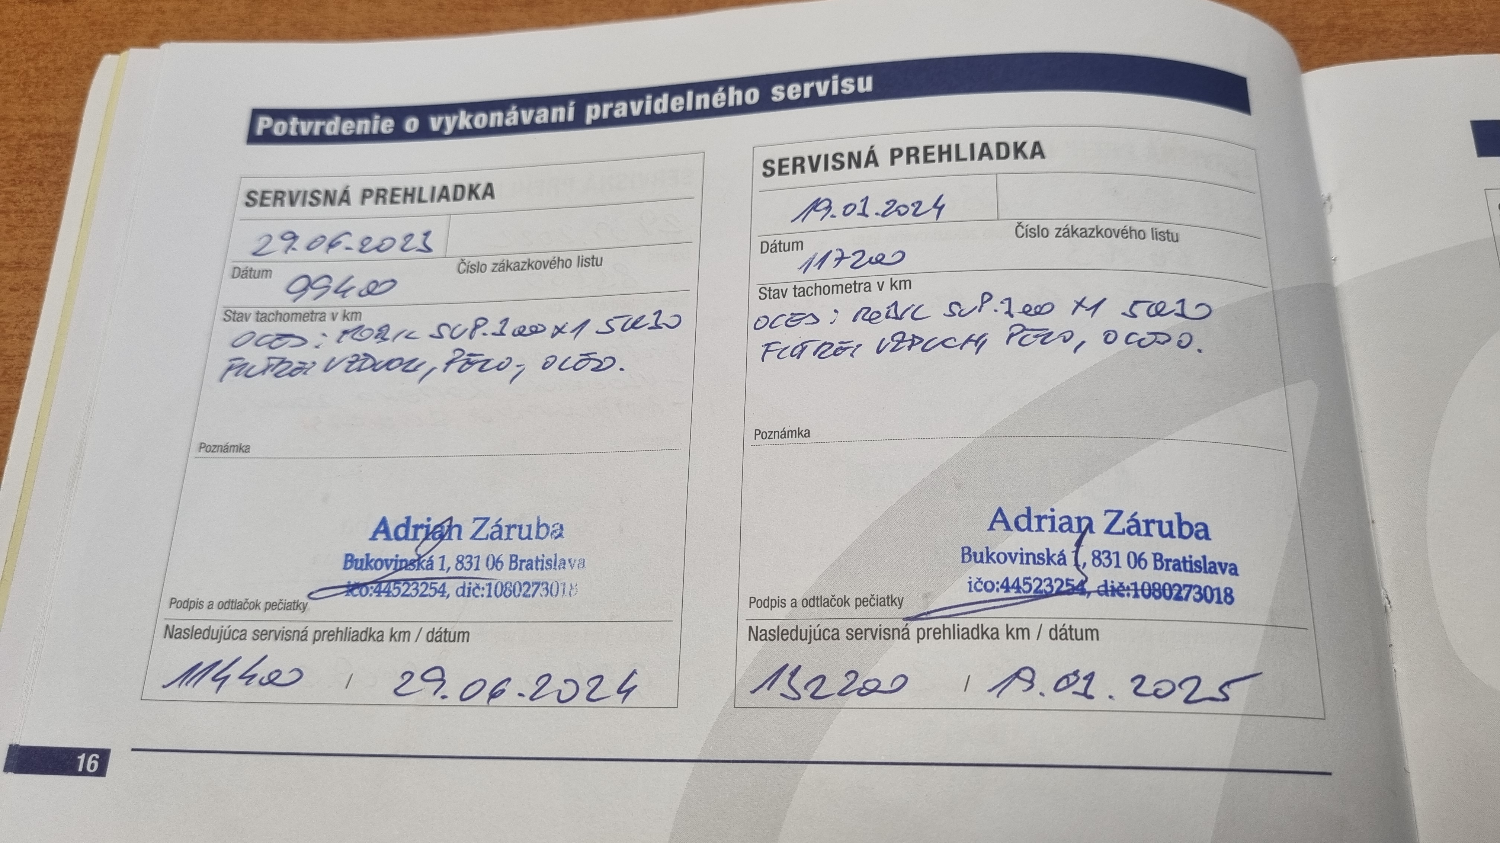 Potvrdenie o vykonávaní pravidelného servisu
SERVISNÁ PREHLIADKA
29.06.2023
Dátum
Číslo zákazkového listu
99400
Stav tachometra v km
OLEJ: MOBIL SUP.3000 X1 5W30
FILTRE: VZDUCH, PEĽO, OLEJ.
Poznámka
Adrian Záruba
Bukovinská 1, 831 06 Bratislava
ičo:44523254, dič:1080273018
Podpis a odtlačok pečiatky
Nasledujúca servisná prehliadka km / dátum
114400 / 29.06.2024
SERVISNÁ PREHLIADKA
19.01.2024
Dátum
Číslo zákazkového listu
117200
Stav tachometra v km
OLEJ: MOBIL SUP.3000 X1 5W30
FILTRE: VZDUCH, PEĽO, OLEJ.
Poznámka
Adrian Záruba
Bukovinská 1, 831 06 Bratislava
ičo:44523254, dič:1080273018
Podpis a odtlačok pečiatky
Nasledujúca servisná prehliadka km / dátum
132200 / 19.01.2025
16